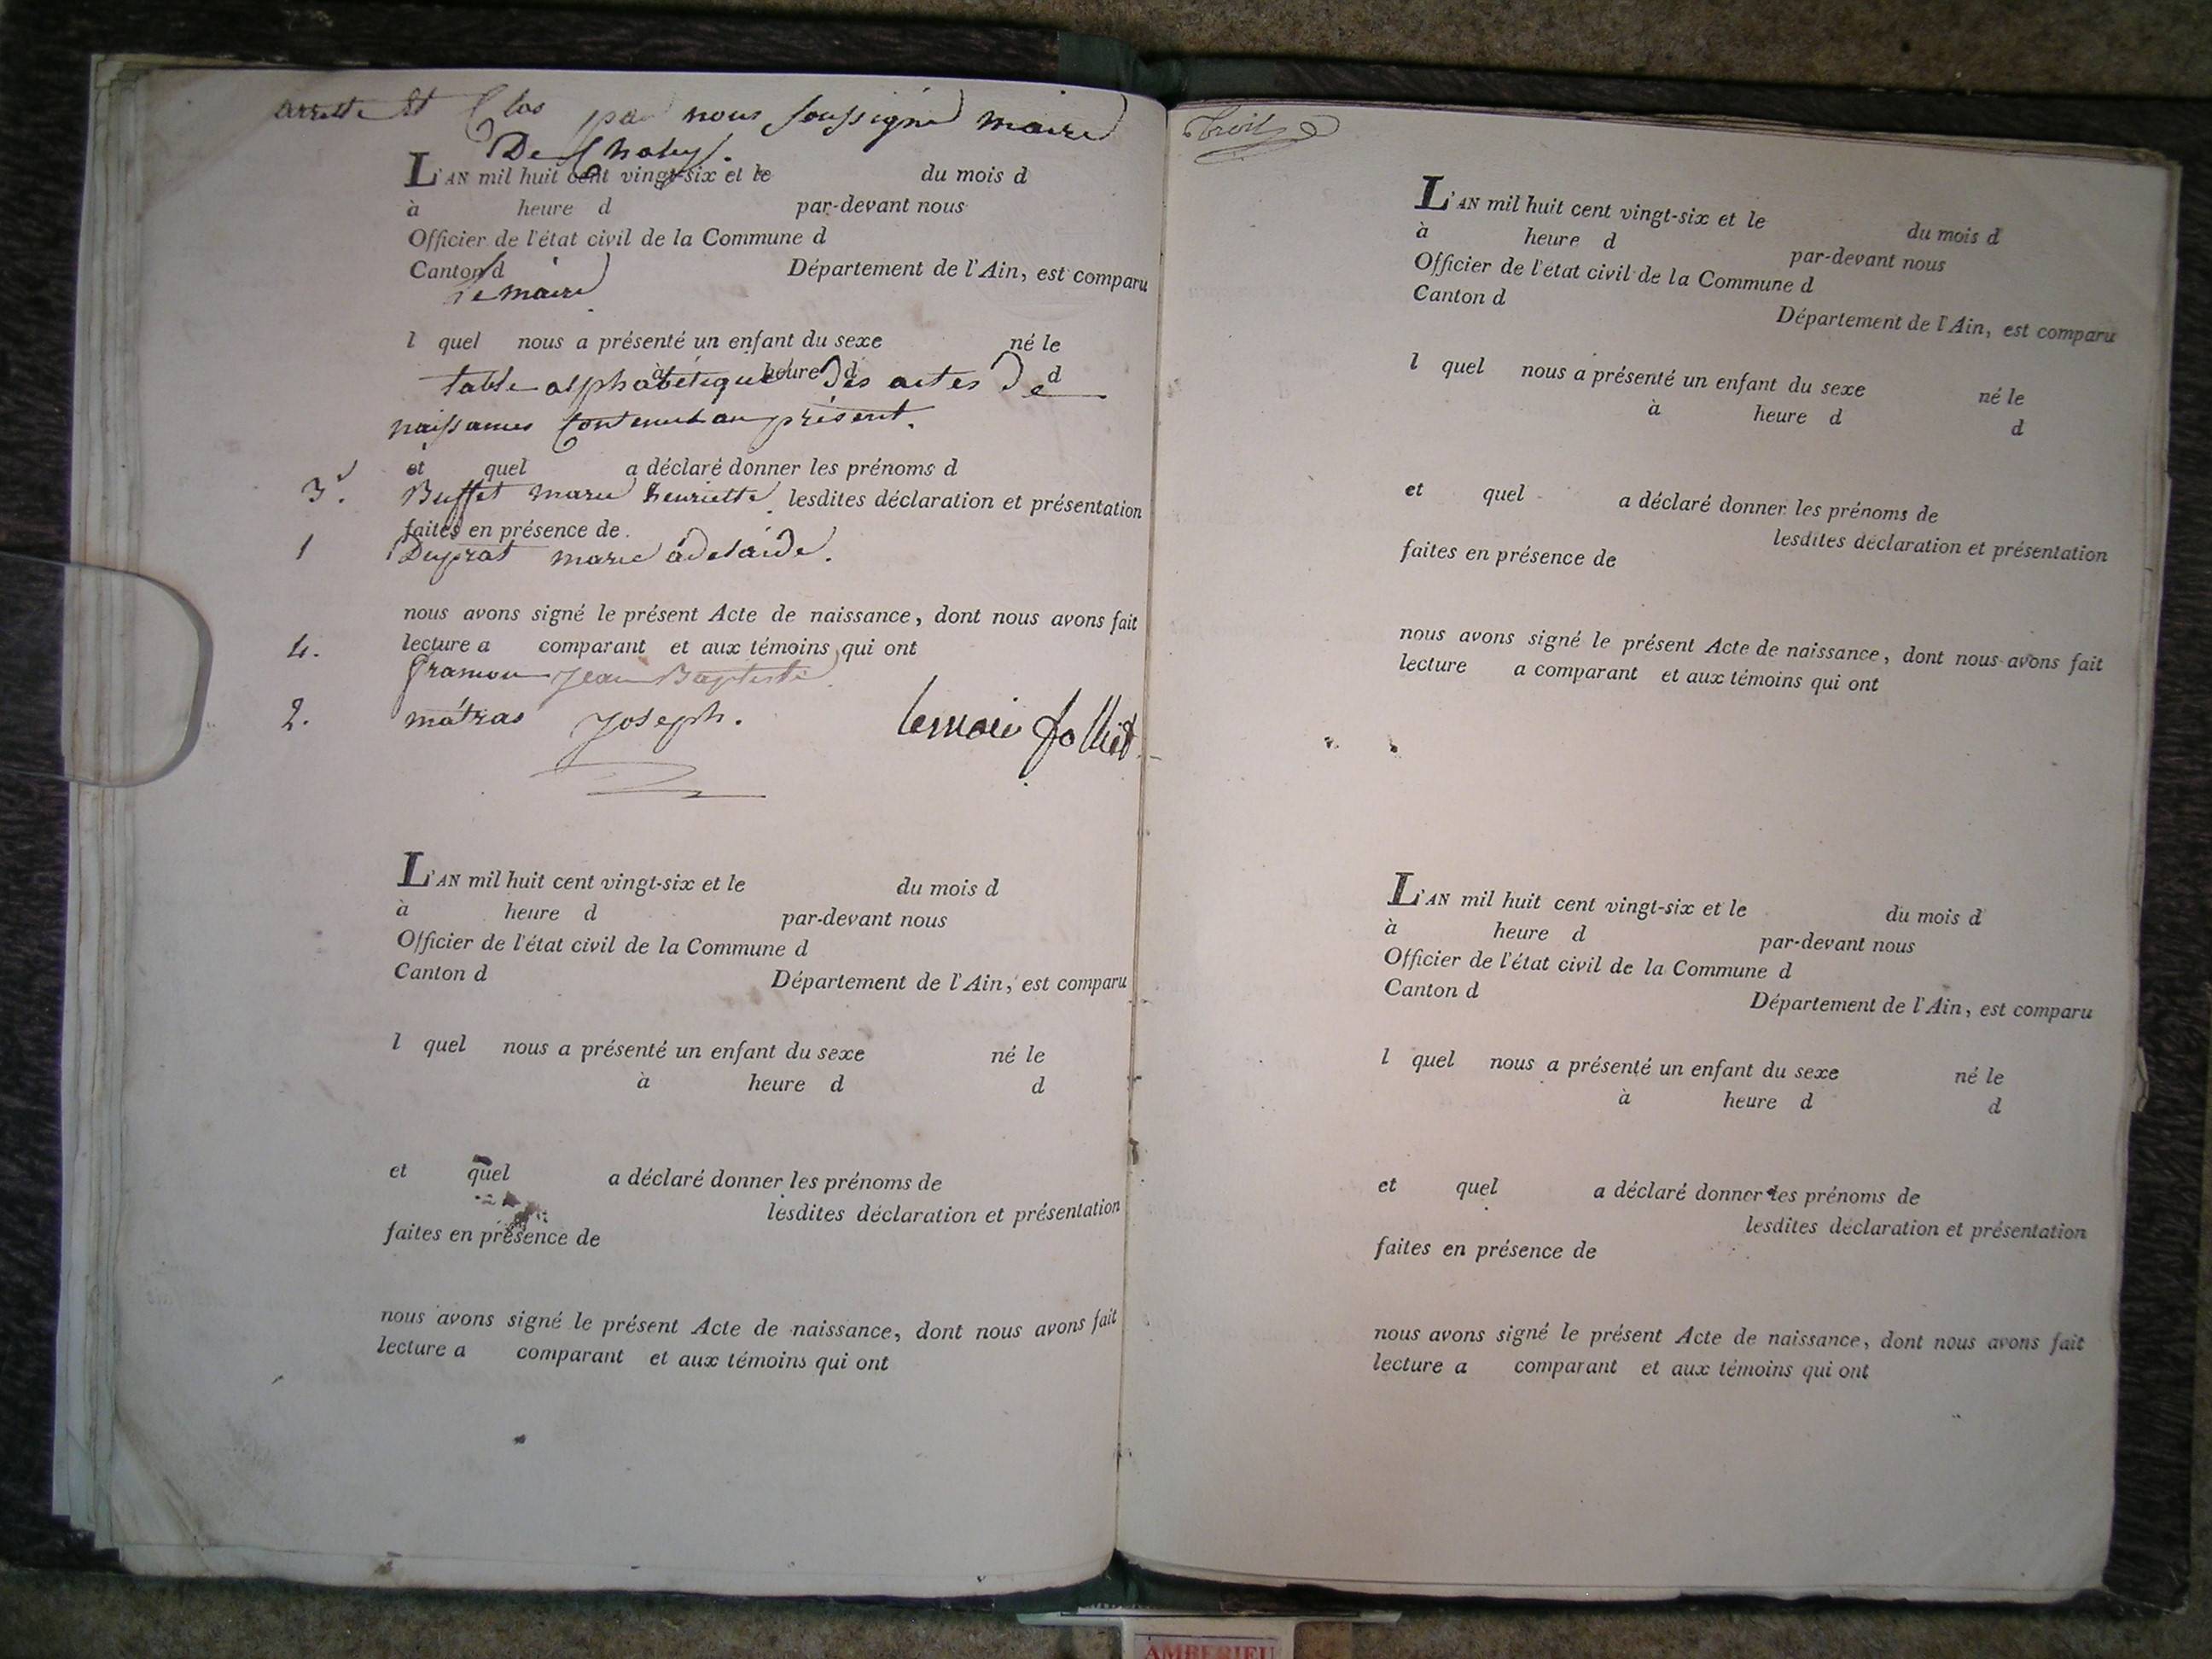 arretté et Clos par nous soussigné maire
De Chaley.
L'AN mil huit cent vingt-six et le du mois d
à heure d par-devant nous
Officier de l'état civil de la Commune d
Canton d Département de l'Ain, est comparu
le maire
l quel nous a présenté un enfant du sexe né le
à heure d d
table alphabétique Des actes De
naissances Contenu au présent.
et quel a déclaré donner les prénoms d
3. Buffet marie henriette lesdites déclaration et présentation
faites en présence de
1 Duprat marie adelaide.
nous avons signé le présent Acte de naissance, dont nous avons fait
lecture a comparant et aux témoins qui ont
4. Jean Baptiste
2. matras Joseph. lemaire
L'AN mil huit cent vingt-six et le du mois d
à heure d par-devant nous
Officier de l'état civil de la Commune d
Canton d Département de l'Ain, est comparu
l quel nous a présenté un enfant du sexe né le
à heure d d
et quel a déclaré donner les prénoms de
lesdites déclaration et présentation
faites en présence de
nous avons signé le présent Acte de naissance, dont nous avons fait
lecture a comparant et aux témoins qui ont
L'AN mil huit cent vingt-six et le du mois d
à heure d par-devant nous
Officier de l'état civil de la Commune d
Canton d Département de l'Ain, est comparu
l quel nous a présenté un enfant du sexe né le
à heure d d
et quel a déclaré donner les prénoms de
lesdites déclaration et présentation
faites en présence de
nous avons signé le présent Acte de naissance, dont nous avons fait
lecture a comparant et aux témoins qui ont
L'AN mil huit cent vingt-six et le du mois d
à heure d par-devant nous
Officier de l'état civil de la Commune d
Canton d Département de l'Ain, est comparu
l quel nous a présenté un enfant du sexe né le
à heure d d
et quel a déclaré donner les prénoms de
lesdites déclaration et présentation
faites en présence de
nous avons signé le présent Acte de naissance, dont nous avons fait
lecture a comparant et aux témoins qui ont
AMBERIEU